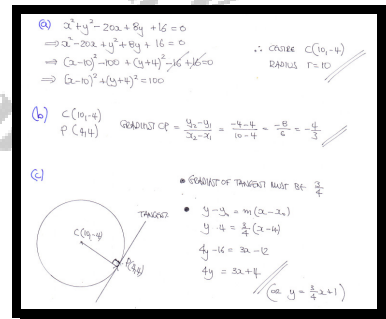 (a) x²+y²-20x+8y+16=0
⇒ x²-20x+y²+8y+16=0
⇒ (x-10)²-100+(y+4)²-16+16=0
⇒ (x-10)²+(y+4)²=100
∴ CENTRE C(10,-4)
RADIUS r=10
(b) C(10,-4)
P(4,4)
GRADIENT CP = (y₂-y₁)/(x₂-x₁) = (-4-4)/(10-4) = -8/6 = -4/3
(c)
• GRADIENT OF TANGENT MUST BE 3/4
• y-y₀=m(x-x₀)
y-4=3/4(x-4)
4y-16=3x-12
4y=3x+4
(or y=3/4x+1)
TANGENT
C(10,-4)
P(4,4)